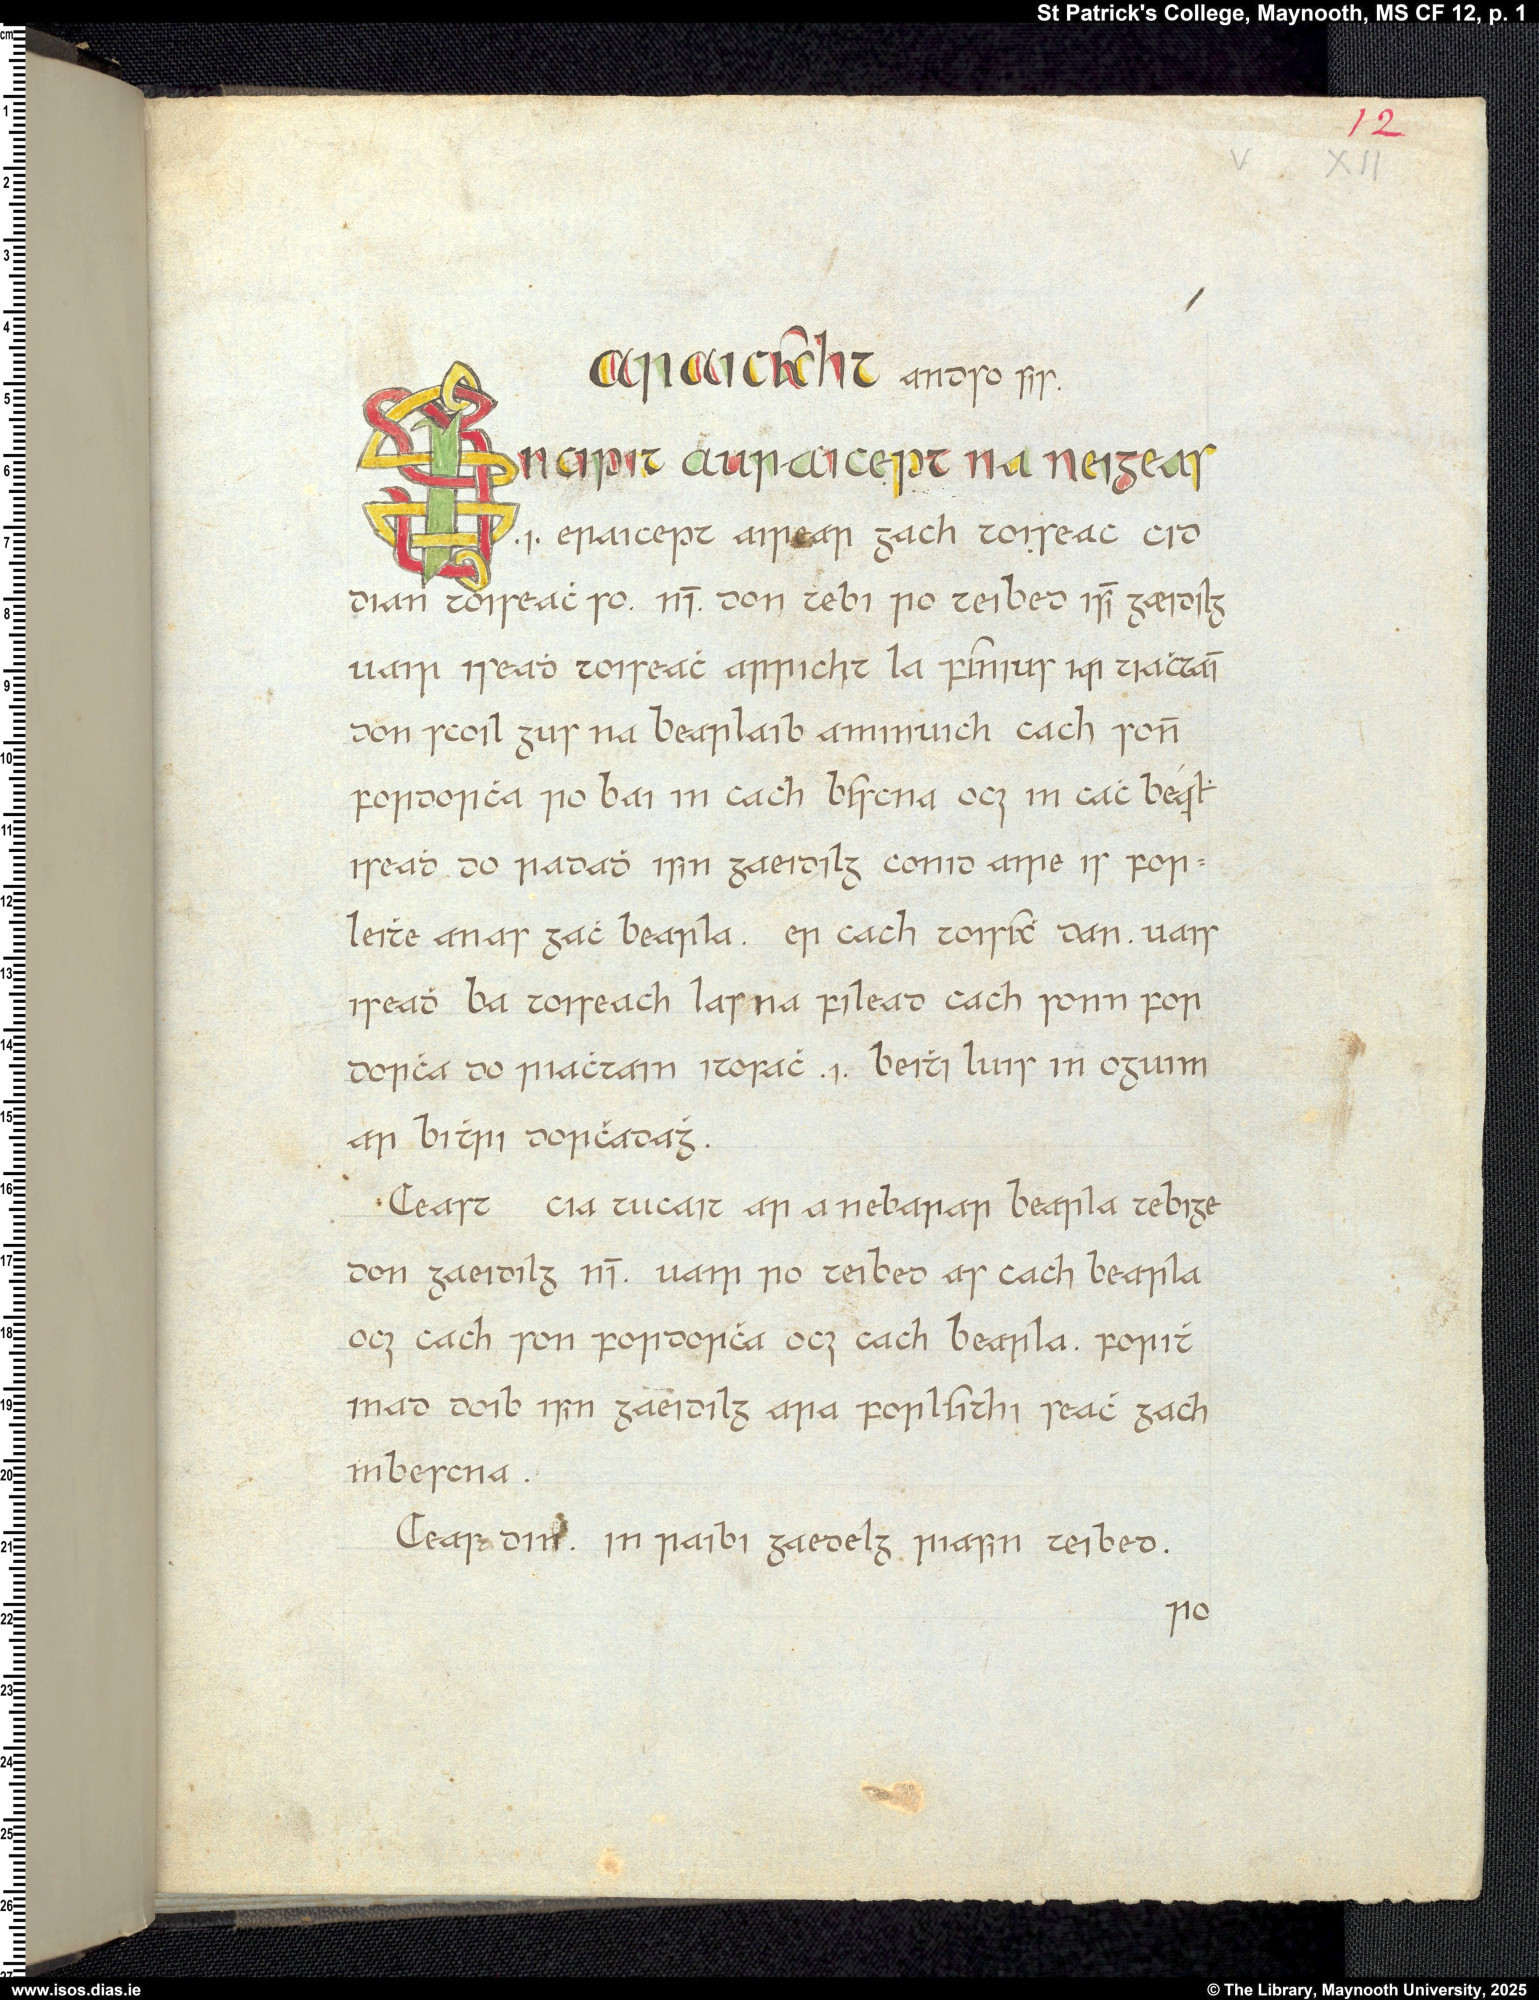 St Patrick's College, Maynooth, MS CF 12, p. 1
12
V XII
araicecht andso sis.
Incipit auraicept na neigeas
.i. eraicept airear gach toiseac cid
dian toiseaċ so. ni̅. don tebi ro teibed isi̅ gæidilg
uair iseaḋ toiseaċ arricht la Fenius iar tiaċtai̅
don scoil gus na bearlaib aminuich cach son̅
fordorċa ro bai in cach bescna ocꝫ in caċ
iseaḋ do radaḋ isin gaeidilg conid aire is for=
leiṫe anas gaċ bearla. er cach toiseċ dan. uais
iseaḋ ba toiseach las na filead cach sonn for
dorċa do riaċtain itosaċ .i. beiṫi luis in oguim
ar biṫri dorċadaġ.
Ceast cia tucait ar a nebarar bearla tebige
don gaeidilg ni̅. uair ro teibed as cach bearla
ocꝫ cach son fordorċa ocꝫ cach bearla. foriṫ
inad doib isin gaeidilg ara forleithi seaċ gach
mbescna.
Ceas din. in raibi gaedelg riasin teibed.
ro
www.isos.dias.ie
© The Library, Maynooth University, 2025